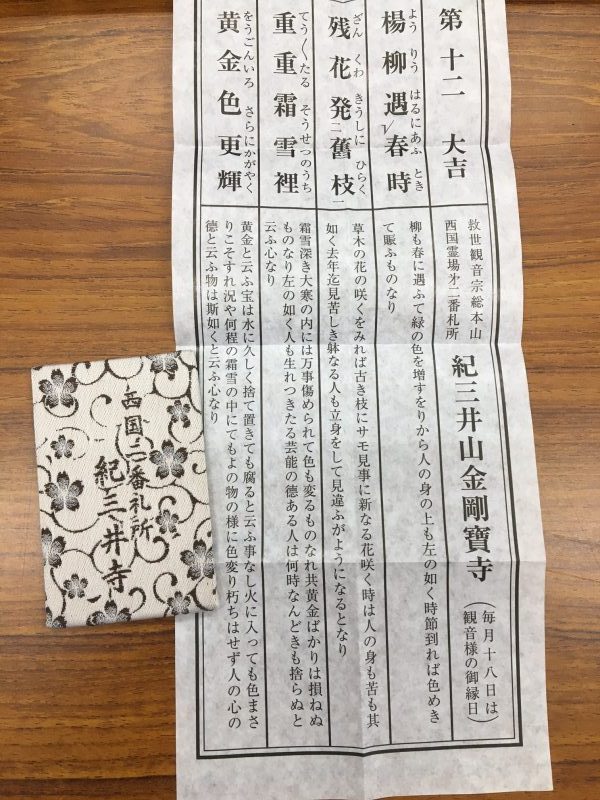 第十二 大吉
楊柳遇春時
よう りう はるにあふ とき
レ
残花発舊枝
ざん くわ きうしに ひらく
二 一
重重霜雪裡
てう〱たる そうせつのうち
黄金色更輝
をうごんいろ さらにかがやく
救世観音宗総本山
西国霊場第二番札所
紀三井山金剛寶寺
(毎月十八日は
観音様の御縁日)
柳も春に遇ふて緑の色を増すをりから人の身の上も左の如く時節到れば色めき
て賑ふものなり
草木の花の咲くをみれば古き枝にサモ見事に新なる花咲く時は人の身も苦も其
如く去年迄見苦しき躰なる人も立身をして見違ふがようになるとなり
霜雪深き大寒の内には万事傷められて色も変るものなれ共黄金ばかりは損ねぬ
ものなり左の如く人も生れつきたる芸能の徳ある人は何時なんどきも捨らぬと
云ふ心なり
黄金と云ふ宝は水に久しく捨て置きても腐ると云ふ事なし火に入っても色まさ
りこそすれ況や何程の霜雪の中にてもよの物の様に色変り朽ちはせず人の心の
徳と云ふ物は斯如くと云ふ心なり
西国二番札所
紀三井寺